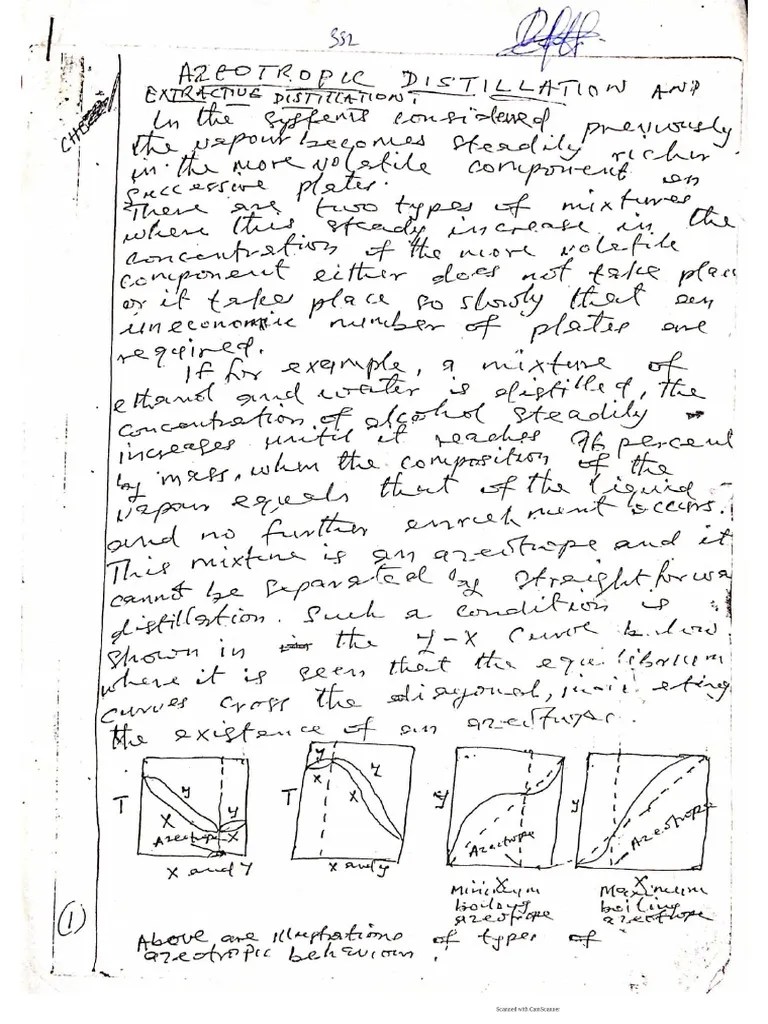 1
SS2
AZEOTROPIC DISTILLATION AND
EXTRACTIVE DISTILLATION.
In the systems considered previously
the vapour becomes steadily richer
in the more volatile component on
successive plates.
There are two types of mixtures
where this steady increase in the
concentration of the more volatile
component either does not take place
or it takes place so slowly that an
uneconomic number of plates are
required.
If for example, a mixture of
ethanol and water is distilled, the
concentration of alcohol steadily
increases until it reaches 96 percent
by mass, when the composition of the
vapour equals that of the liquid
and no further enrichment occurs.
This mixture is an azeotrope and it
cannot be separated by straightforwa
distillation. Such a condition is
shown in the y-x curve below
where it is seen that the equilibrium
curves cross the diagonal, indicating
the existence of an azeotrope.
T y x y x Azeotrope x and y
T y x y x x and y
y Azeotrope x
y Azeotrope x
Minimum boiling azeotrope
Maximum boiling azeotrope
(1)
Above are illustrations of types of
azeotropic behaviour.
Scanned with CamScanner